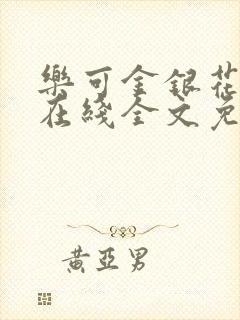 樂可金銀花
在綫全文免
黃亞男